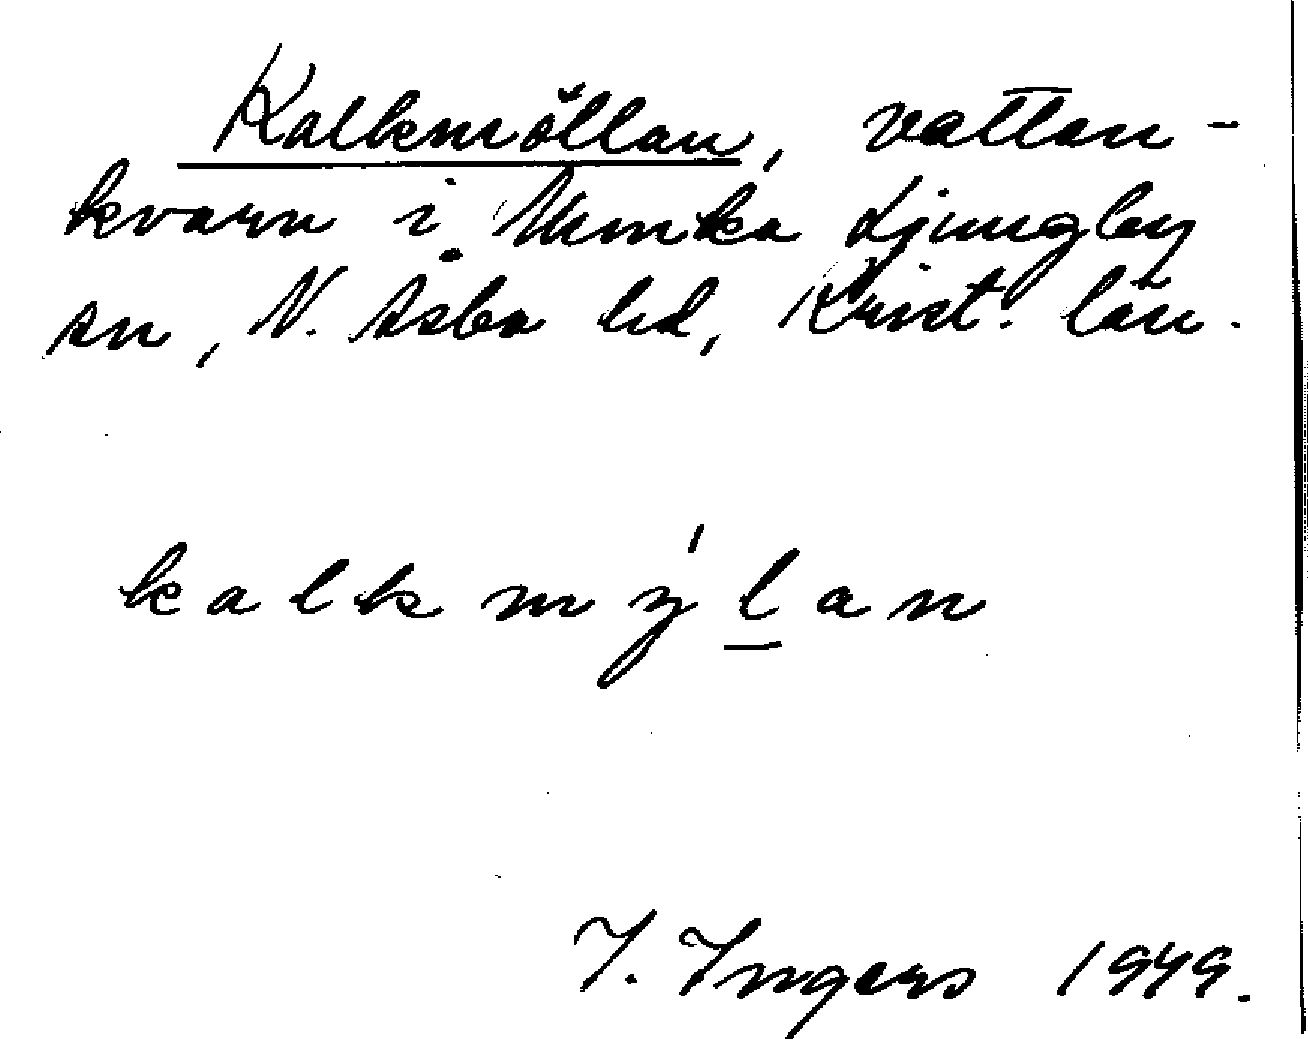 Kalkmöllan, vatten-
kvarn i Munka Ljungby
sn, N. Åsbo hd, Krist. län.
kalkmýlan
I. Ingers 1949.